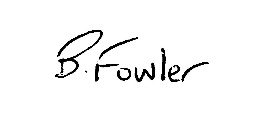 B. Fowler